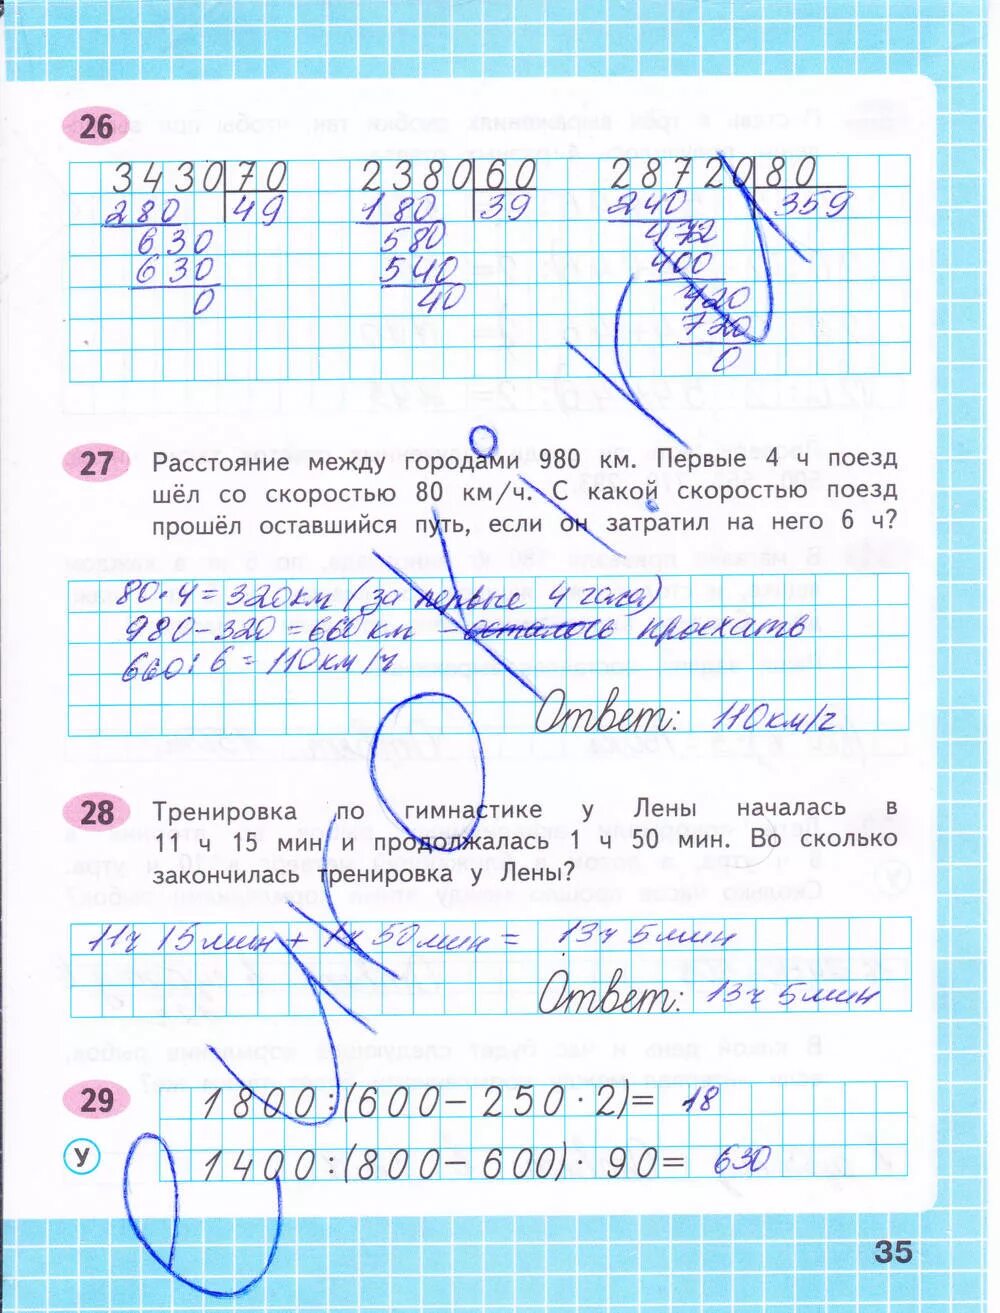 26
3430 70 2380 60 28720 80
280 49 180 39 240 359
630 580 472
630 540 400
0 40 720
720
0
27 Расстояние между городами 980 км. Первые 4 ч поезд
шёл со скоростью 80 км/ч. С какой скоростью поезд
прошёл оставшийся путь, если он затратил на него 6 ч?
80·4=320км (за первые 4 часа)
980-320=660км - осталось проехать
660:6=110км/ч
Ответ: 110км/ч
28 Тренировка по гимнастике у Лены началась в
11 ч 15 мин и продолжалась 1 ч 50 мин. Во сколько
закончилась тренировка у Лены?
11ч 15мин + 1ч 50мин = 13ч 5мин
Ответ: 13ч 5мин
29 1800:(600-250·2)= 18
У 1400:(800-600)·90= 630
35